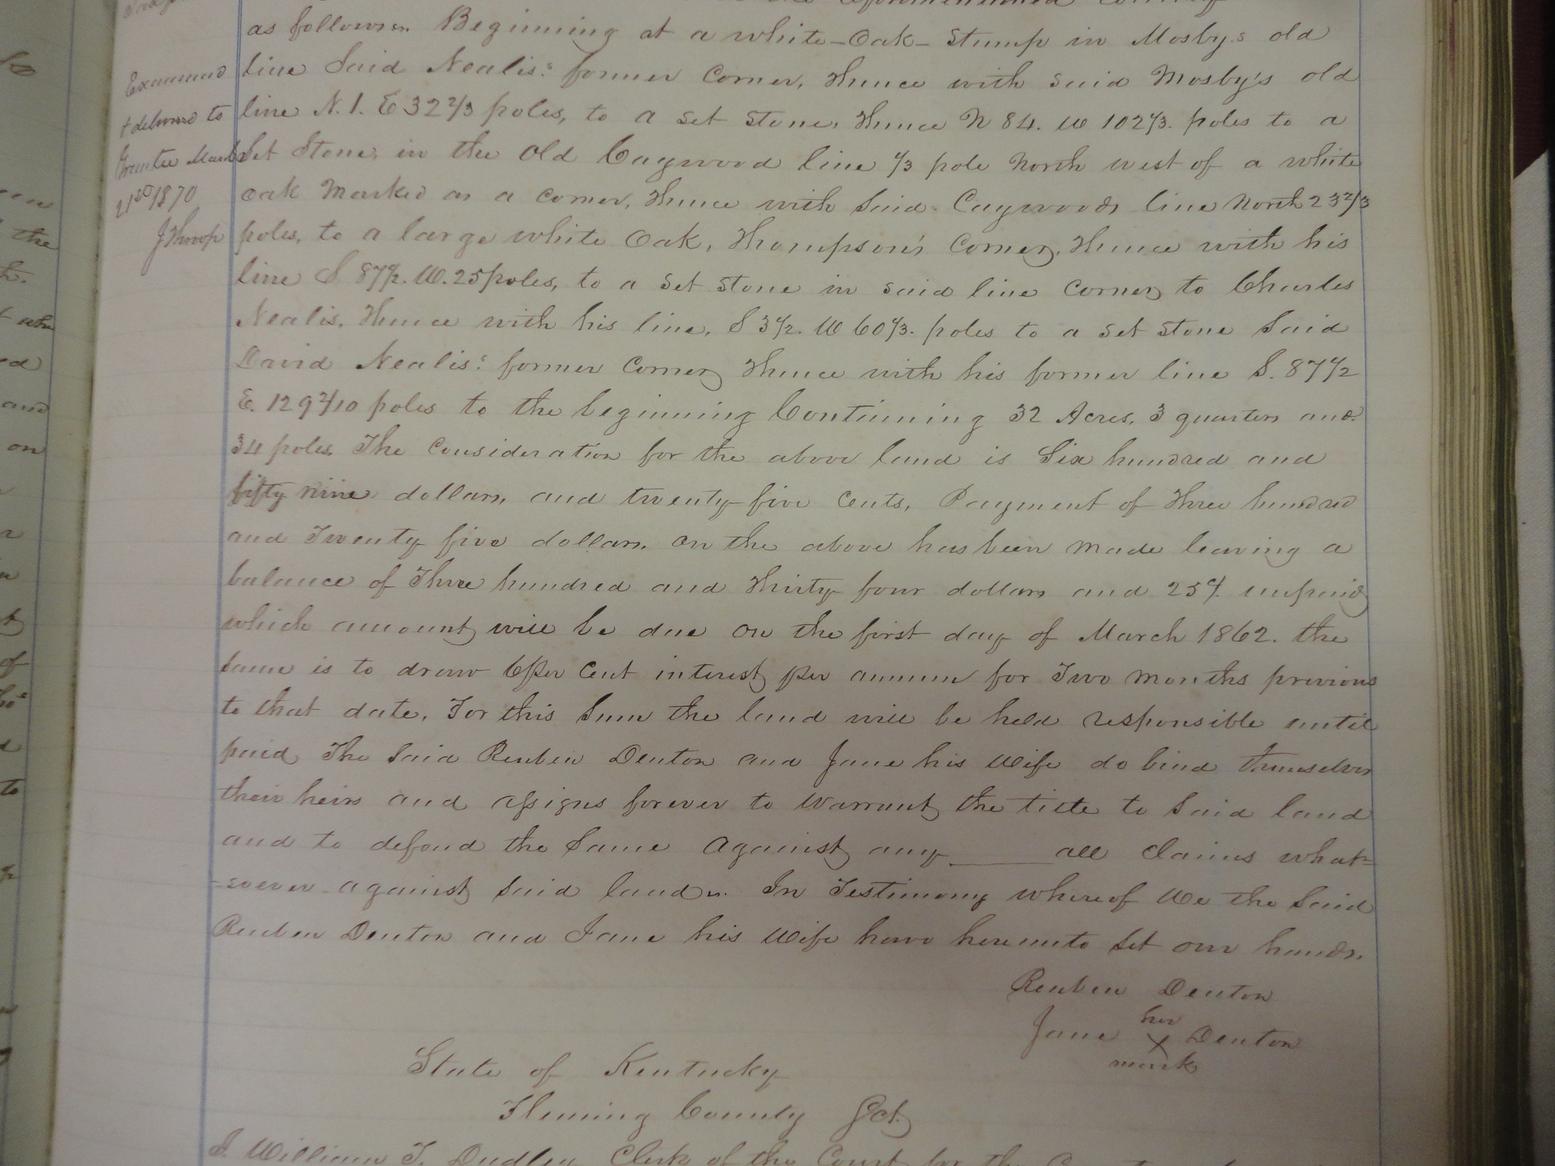 as follows. Beginning at a white-Oak-Stump in Mosby's old
line Said Nealis' former Corner, thence with said Mosby's old
line N. 1. E 32 2/3 poles, to a set stone, thence N 84. W 102 1/3. poles to a
Set Stone, in the Old Caywood line 1/3 pole North west of a white
oak Marked as a corner, thence with Said Caywoods line North 23 2/3
poles, to a large white Oak, Thompson's Corner, thence with his
line S 87 1/2. W. 25 poles, to a set stone in said line corner to Charles
Nealis, thence with his line, S 3 1/2. W 60 1/3. poles to a set stone Said
David Nealis' former corner thence with his former line S. 87 1/2
E. 129 2/10 poles to the beginning Containing 32 Acres, 3 quarters and
34 poles, The Consideration for the above land is Six hundred and
fifty nine dollars, and twenty-five Cents, Payment of Three hundred
and Twenty five dollars. on the above has been made leaving a
balance of Three hundred and thirty four dollars and 25¢ unpaid
which amount will be due on the first day of March 1862. the
Same is to draw 6 per Cent interest per annum for Two months previous
to that date, For this Sum the land will be held responsible until
paid, The Said Reuben Denton and Jane his Wife do bind themselves
their heirs and assigns forever to Warrant the title to Said land
and to defend the Same Against any ____ all claims what=
-soever against Said land. In Testimony whereof We the Said
Reuben Denton and Jane his Wife have hereunto Set our hands.
Reuben Denton
her
Jane X Denton
mark
State of Kentucky
Fleming County Sct.
I William T. Dudley Clerk of the Court for the
Examined
& delivered to
Grantee March
21st 1870
J Throop